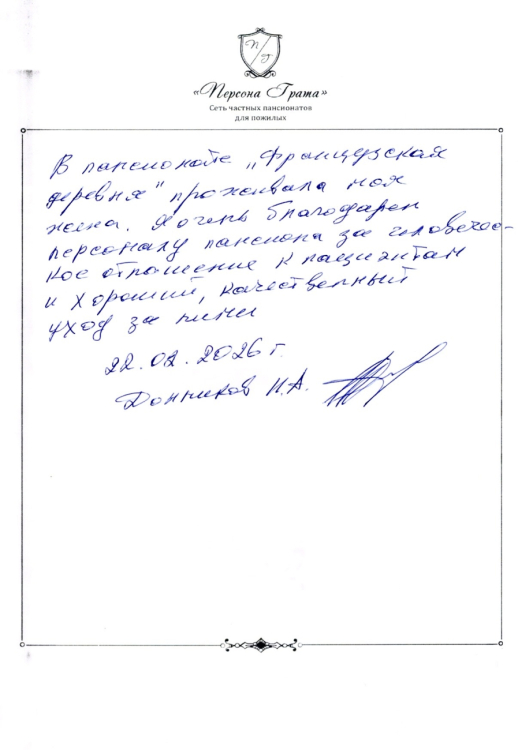 П/Г
«Персона Грата»
Сеть частных пансионатов
для пожилых
В пансионате „Французская
деревня" проживала моя
жена. Я очень благодарен
персоналу пансиона за человечес-
кое отношение к пациентам
и хороший, качественный
уход за ними
22.02.2026 г.
Донников Н.А.